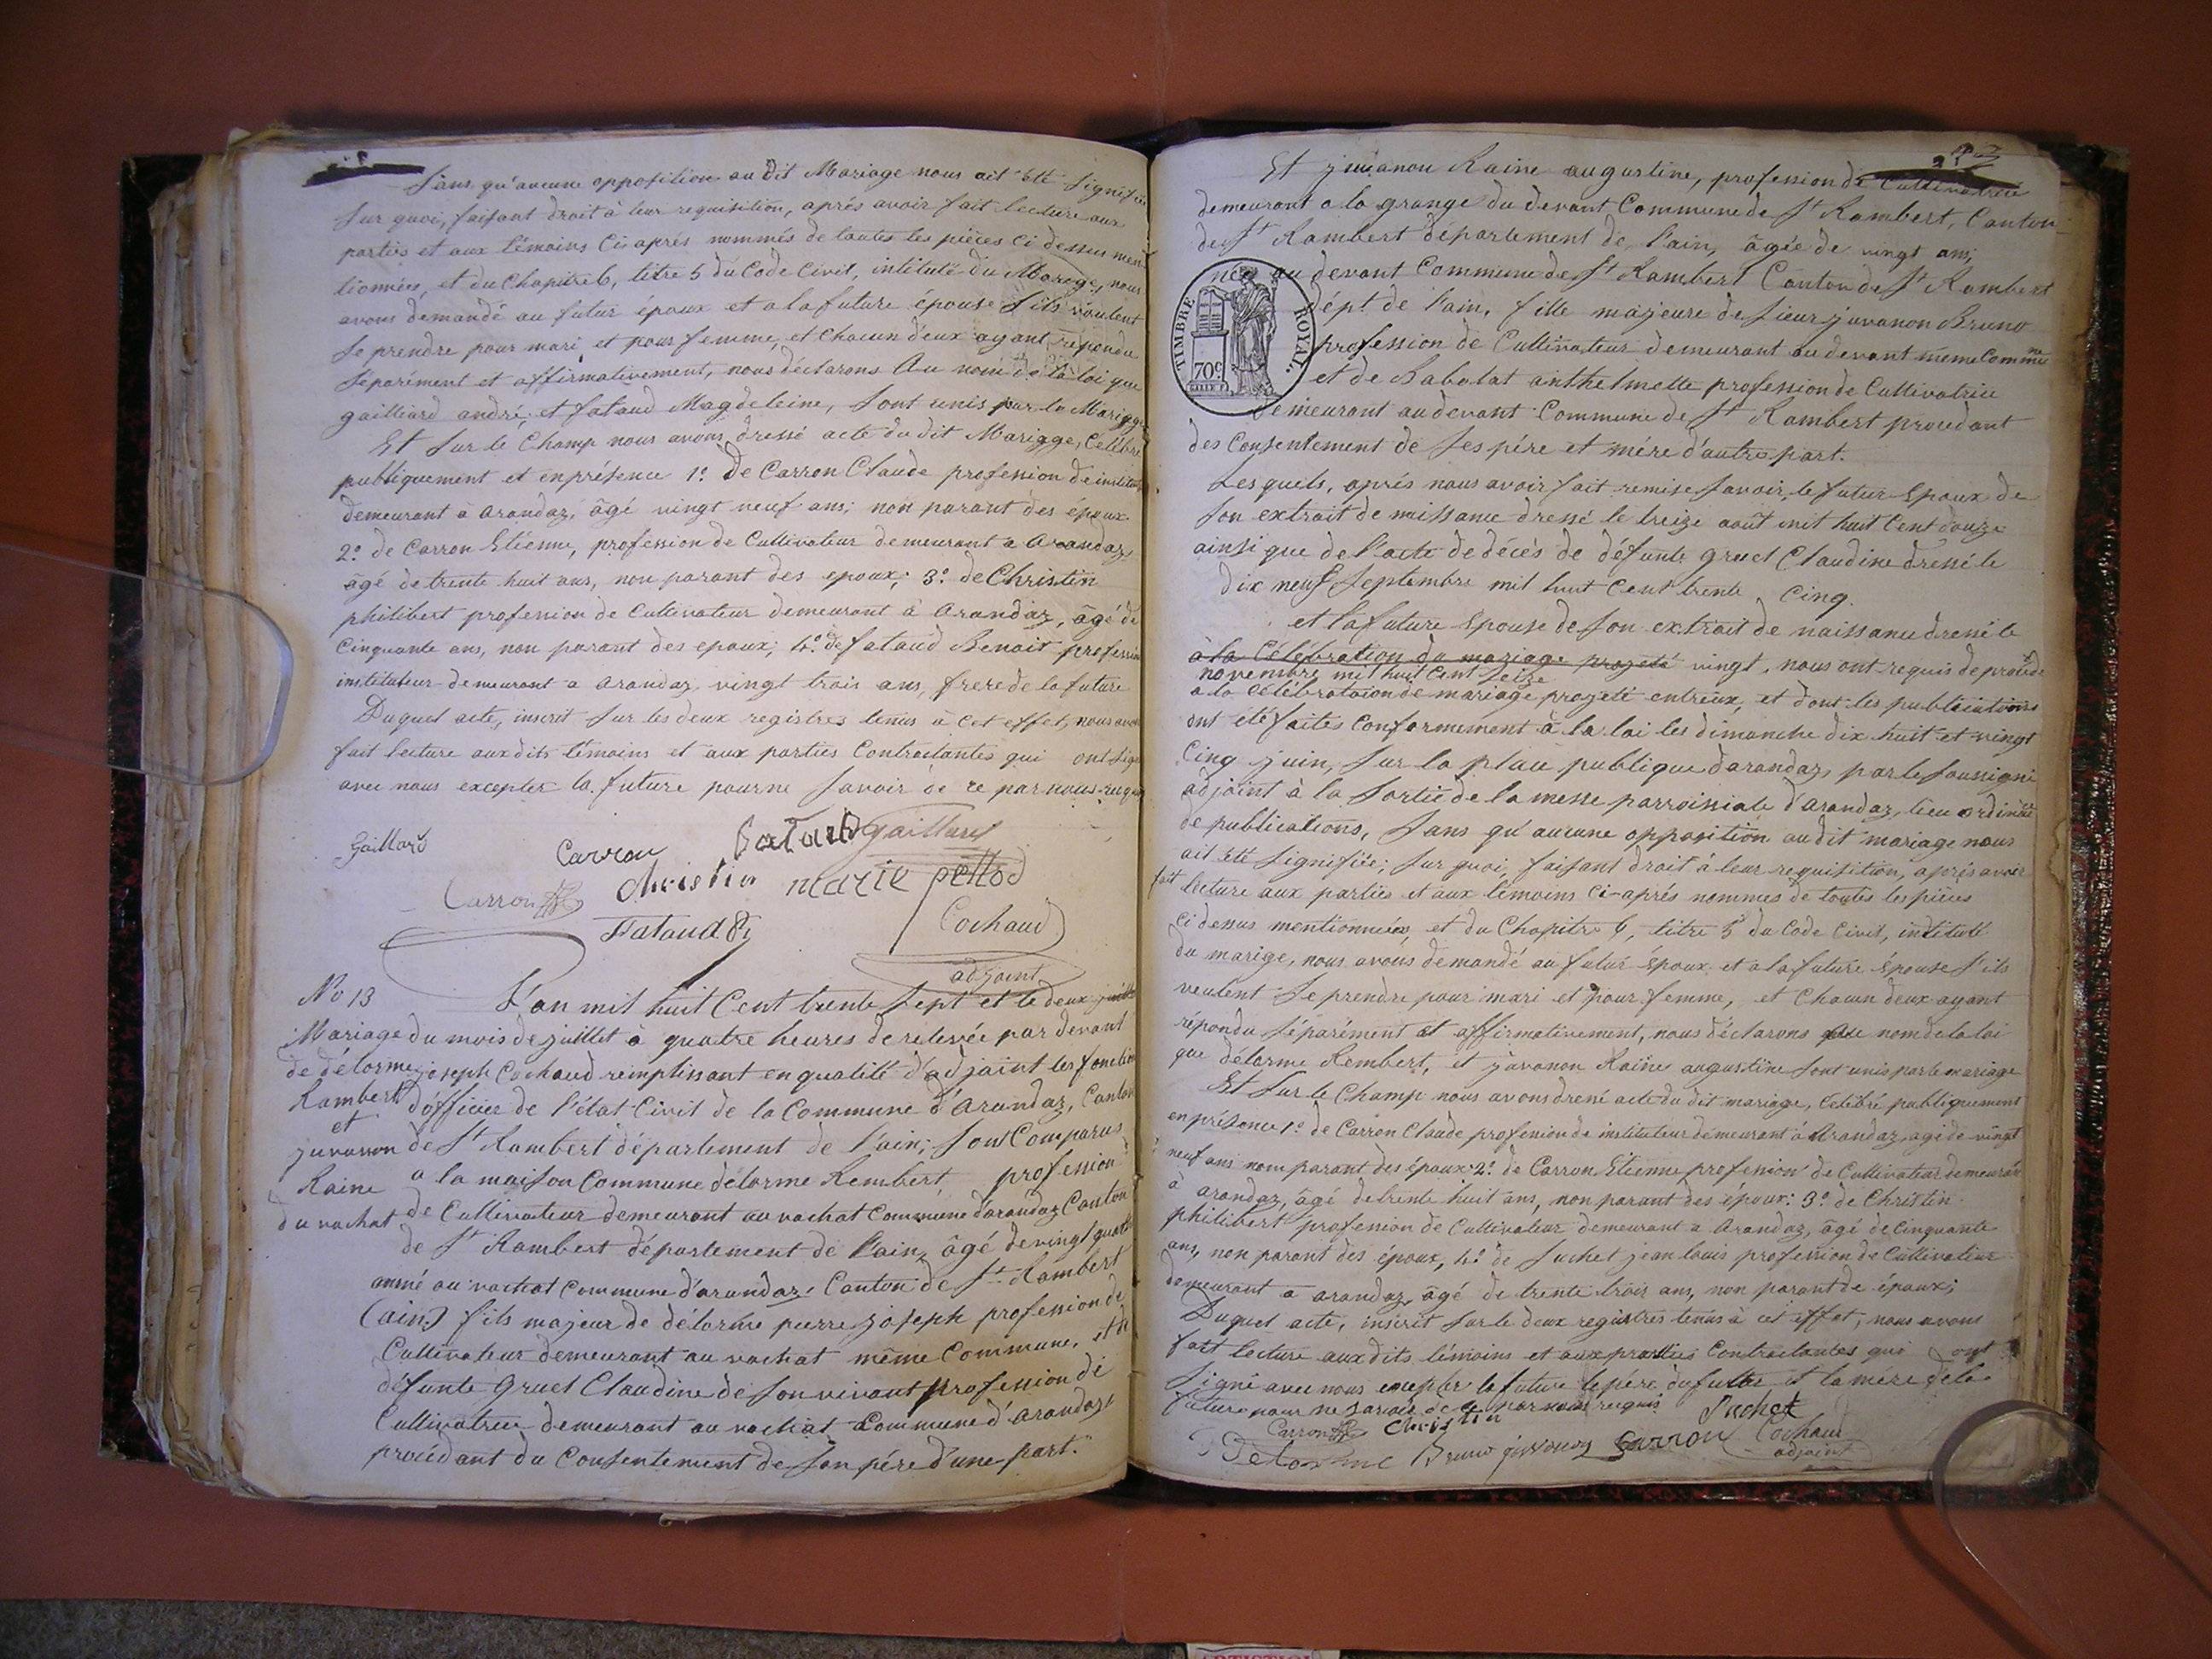 Sans qu'aucune opposition au dit Mariage nous ait été signifiée
Sur quoi, faisant droit à leur requisition, aprés avoir fait lecture aux
parties et aux témoins Ci aprés nommés de toutes les pièces Ci dessus men
tionnées, et du Chapitre 6, titre 5 du Code Civil, intitulé du Mariage, nous
avons demandé au futur époux et a la future épouse s'ils veulent
se prendre pour mari et pour femme, et Chacun d'eux ayant répondu
séparément et affirmativement, nous déclarons Au nom de la loi que
gailliard andré, et fataud Magdeleine, sont unis par le Mariage
Et sur le Champ nous avons dressé acte du dit Mariage, Célébré
publiquement et en présence 1º. de Carron Claude profession de institu
demeurant à arandaz, âgé vingt neuf ans; non parant des époux
2º. de Carron Etienne, profession de Cultivateur demeurant a Arandaz
âgé de trente huit ans, non parant des epoux; 3º. de Christin
philibert profession de Cultivateur demeurant à Arandaz, âgé de
Cinquante ans, non parant des epoux; 4º. de fataud Benoit profession
instituteur demeurant a arandaz vingt trois ans, frere de la future
Duquel acte, inscrit sur les deux registres tenus à cet effet, nous avons
fait lecture auxdits témoins et aux parties Contractantes qui ont sign
avec nous excepter la future pour ne savoir de ce par nous requis
Gaillard Carron fataud Gaillard
Carron Christin marie pettod
Fataud B. Cochaud
adjoint
No 13 L'an mil huit Cent trente sept et le deux juillet
Mariage du mois de juillet à quatre heures de relevée par devant
de délorme joseph Cochaud remplissant en qualité d'adjoint les fonction
Rambert d'officier de l'état Civil de la Commune d'Arandaz, Canton
et
juvanon de St Rambert département de l'ain; sont Comparus
Raine a la maison Commune delorme Rembert profession
du vachat de Cultivateur demeurant au vachat Commune d'arandaz Canton
de St Rambert département de l'ain, âgé de vingt quatre
anné au vachat Commune d'arandaz, Canton de St Rambert
(ain) fils majeur de délorme pierre joseph profession de
Cultivateur demeurant au vachat même Commune, et de
défunte Gruel Claudine de son vivant profession de
Cultivatrice demeurant au vachat Commune d'Arandaz,
procédant du Consentement de son pére d'une part.
Et juvanon Raine augustine, profession de Cultivatrice
demeurant a la grange du devant Commune de St Rambert, Canton
de St Rambert département de l'ain, âgée de vingt ans;
née au devant Commune de St Rambert Canton de St Rambert
dépt. de l'ain, fille majeure de sieur juvanon Bruno
profession de Cultivateur demeurant au devant même Commune
et de Babolat anthelmette profession de Cultivatrice
demeurant au devant Commune de St Rambert procédant
TIMBRE ROYAL.
70c
des Consentement de ses pére et mére d'autre part.
Lesquels, aprés nous avoir fait remise savoir, le futur Epoux de
son extrait de naissance dressé le treize août mil huit Cent douze
ainsi que de l'acte de décés de défunte gruel Claudine dressé le
dix neuf Septembre mil huit Cent trente Cinq.
et la future Epouse de son extrait de naissance dressé le
à la Célébration du mariage projeté vingt, nous ont requis de procéder
novembre mil huit Cent seize
a la célébration de mariage projeté entreux, et dont les publications
ont été faites Conformement à la loi les dimanche dix huit et vingt
Cinq juin, sur la place publique d'arandaz, par le soussigné
adjoint à la sortie de la messe parroissiale d'Arandaz, lieu ordinaire
de publications, sans qu'aucune opposition au dit mariage nous
ait été signifiée; sur quoi, faisant droit à leur requisition, aprés avoir
fait lecture aux parties et aux témoins Ci-aprés nommés de toutes les pièces
Ci dessus mentionnées, et du Chapitre 6, titre 5 du Code Civil, intitulé
du marige, nous avons demandé au futur époux et a la future épouse s'ils
veulent se prendre pour mari et pour femme, et Chacun deux ayant
répondu séparément et affirmativement, nous déclarons au nom de la loi
que délorme Rembert, et juvanon Raine augustine sont unis par le mariage
Et sur le Champ nous avons dressé acte du dit mariage, Célébré publiquement
en présence 1º. de Carron Claude profession de instituteur demeurant à Arandaz, agé de vingt
neuf ans non parant des époux 2º. de Carron Etienne profession de Cultivateur demeurant
à arandaz, âgé de trente huit ans, non parant des époux: 3º. de Christin
philibert profession de Cultivateur demeurant a Arandaz, âgé de Cinquante
ans, non parant des époux, 4º. de Suchet jean louis profession de Cultivateur
demeurant a arandaz, âgé de trente trois ans, non parant de époux;
Duquel acte, inscrit sur le deux registres tenus à cet effet, nous avons
fait lecture auxdits témoins et aux parties Contractantes qui ont
signé avec nous excepter la future le pére du futur et la mére de la
future pour ne savoir de ce par nous requis Suchet
Carron Christin Cochaud
Delorme Bruno juvanon Carron adjoint